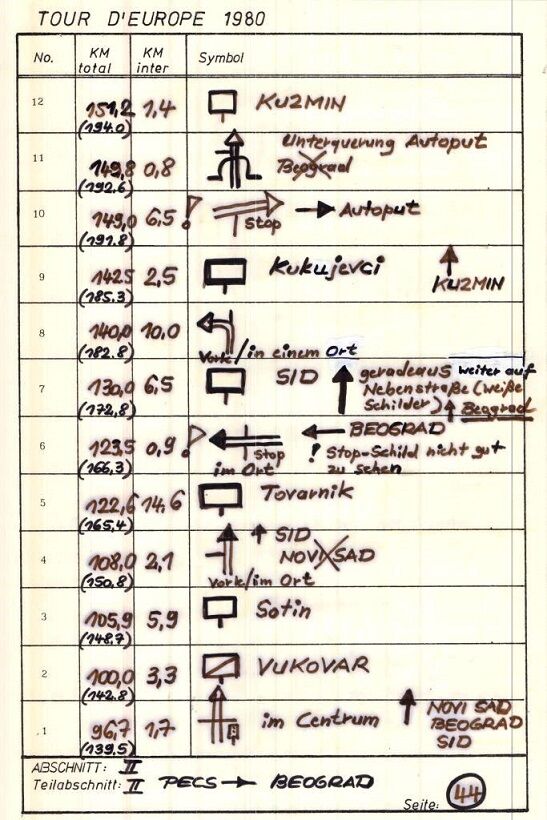 TOUR D'EUROPE 1980
No. KM total KM inter Symbol
12 151,2 1,4 KUZMIN
(194.0)
Unterquerung Autoput
11 149,8 0,8 Beograd
(192,6)
10 149,0 6,5 ! Stop Autoput
(191.8)
9 142,5 2,5 Kukujevci
(185.3) KUZMIN
8 140,0 10,0
(182,8) Vork/in einem Ort
7 130,0 6,5 SID geradeaus weiter auf
(172,8) Nebenstraße (weiße
Schilder) Beograd
6 123,5 0,9 ! Stop BEOGRAD
(166,3) im Ort ! Stop-Schild nicht gut
zu sehen
5 122,6 14,6 Tovarnik
(165,4)
SID
4 108,0 2,1 NOVI SAD
(150,8) Vork/im Ort
3 105,9 5,9 Sotin
(148,7)
2 100,0 3,3 VUKOVAR
(142.8)
1 96,7 1,7 im Centrum NOVI SAD
(139,5) BEOGRAD
SID
ABSCHNITT: II
Teilabschnitt: II PECS → BEOGRAD
Seite: 44